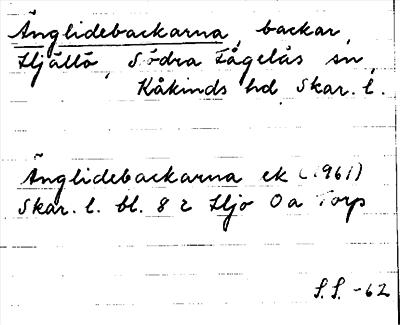 Änglidebackarna, backar,
Hjällö, Södra Fågelås sn,
Kåkinds hd, Skar. l.
Änglidebackarna ek (1961)
Skar. l. bl. 82 Hjo Oa Torp
S.S. -62